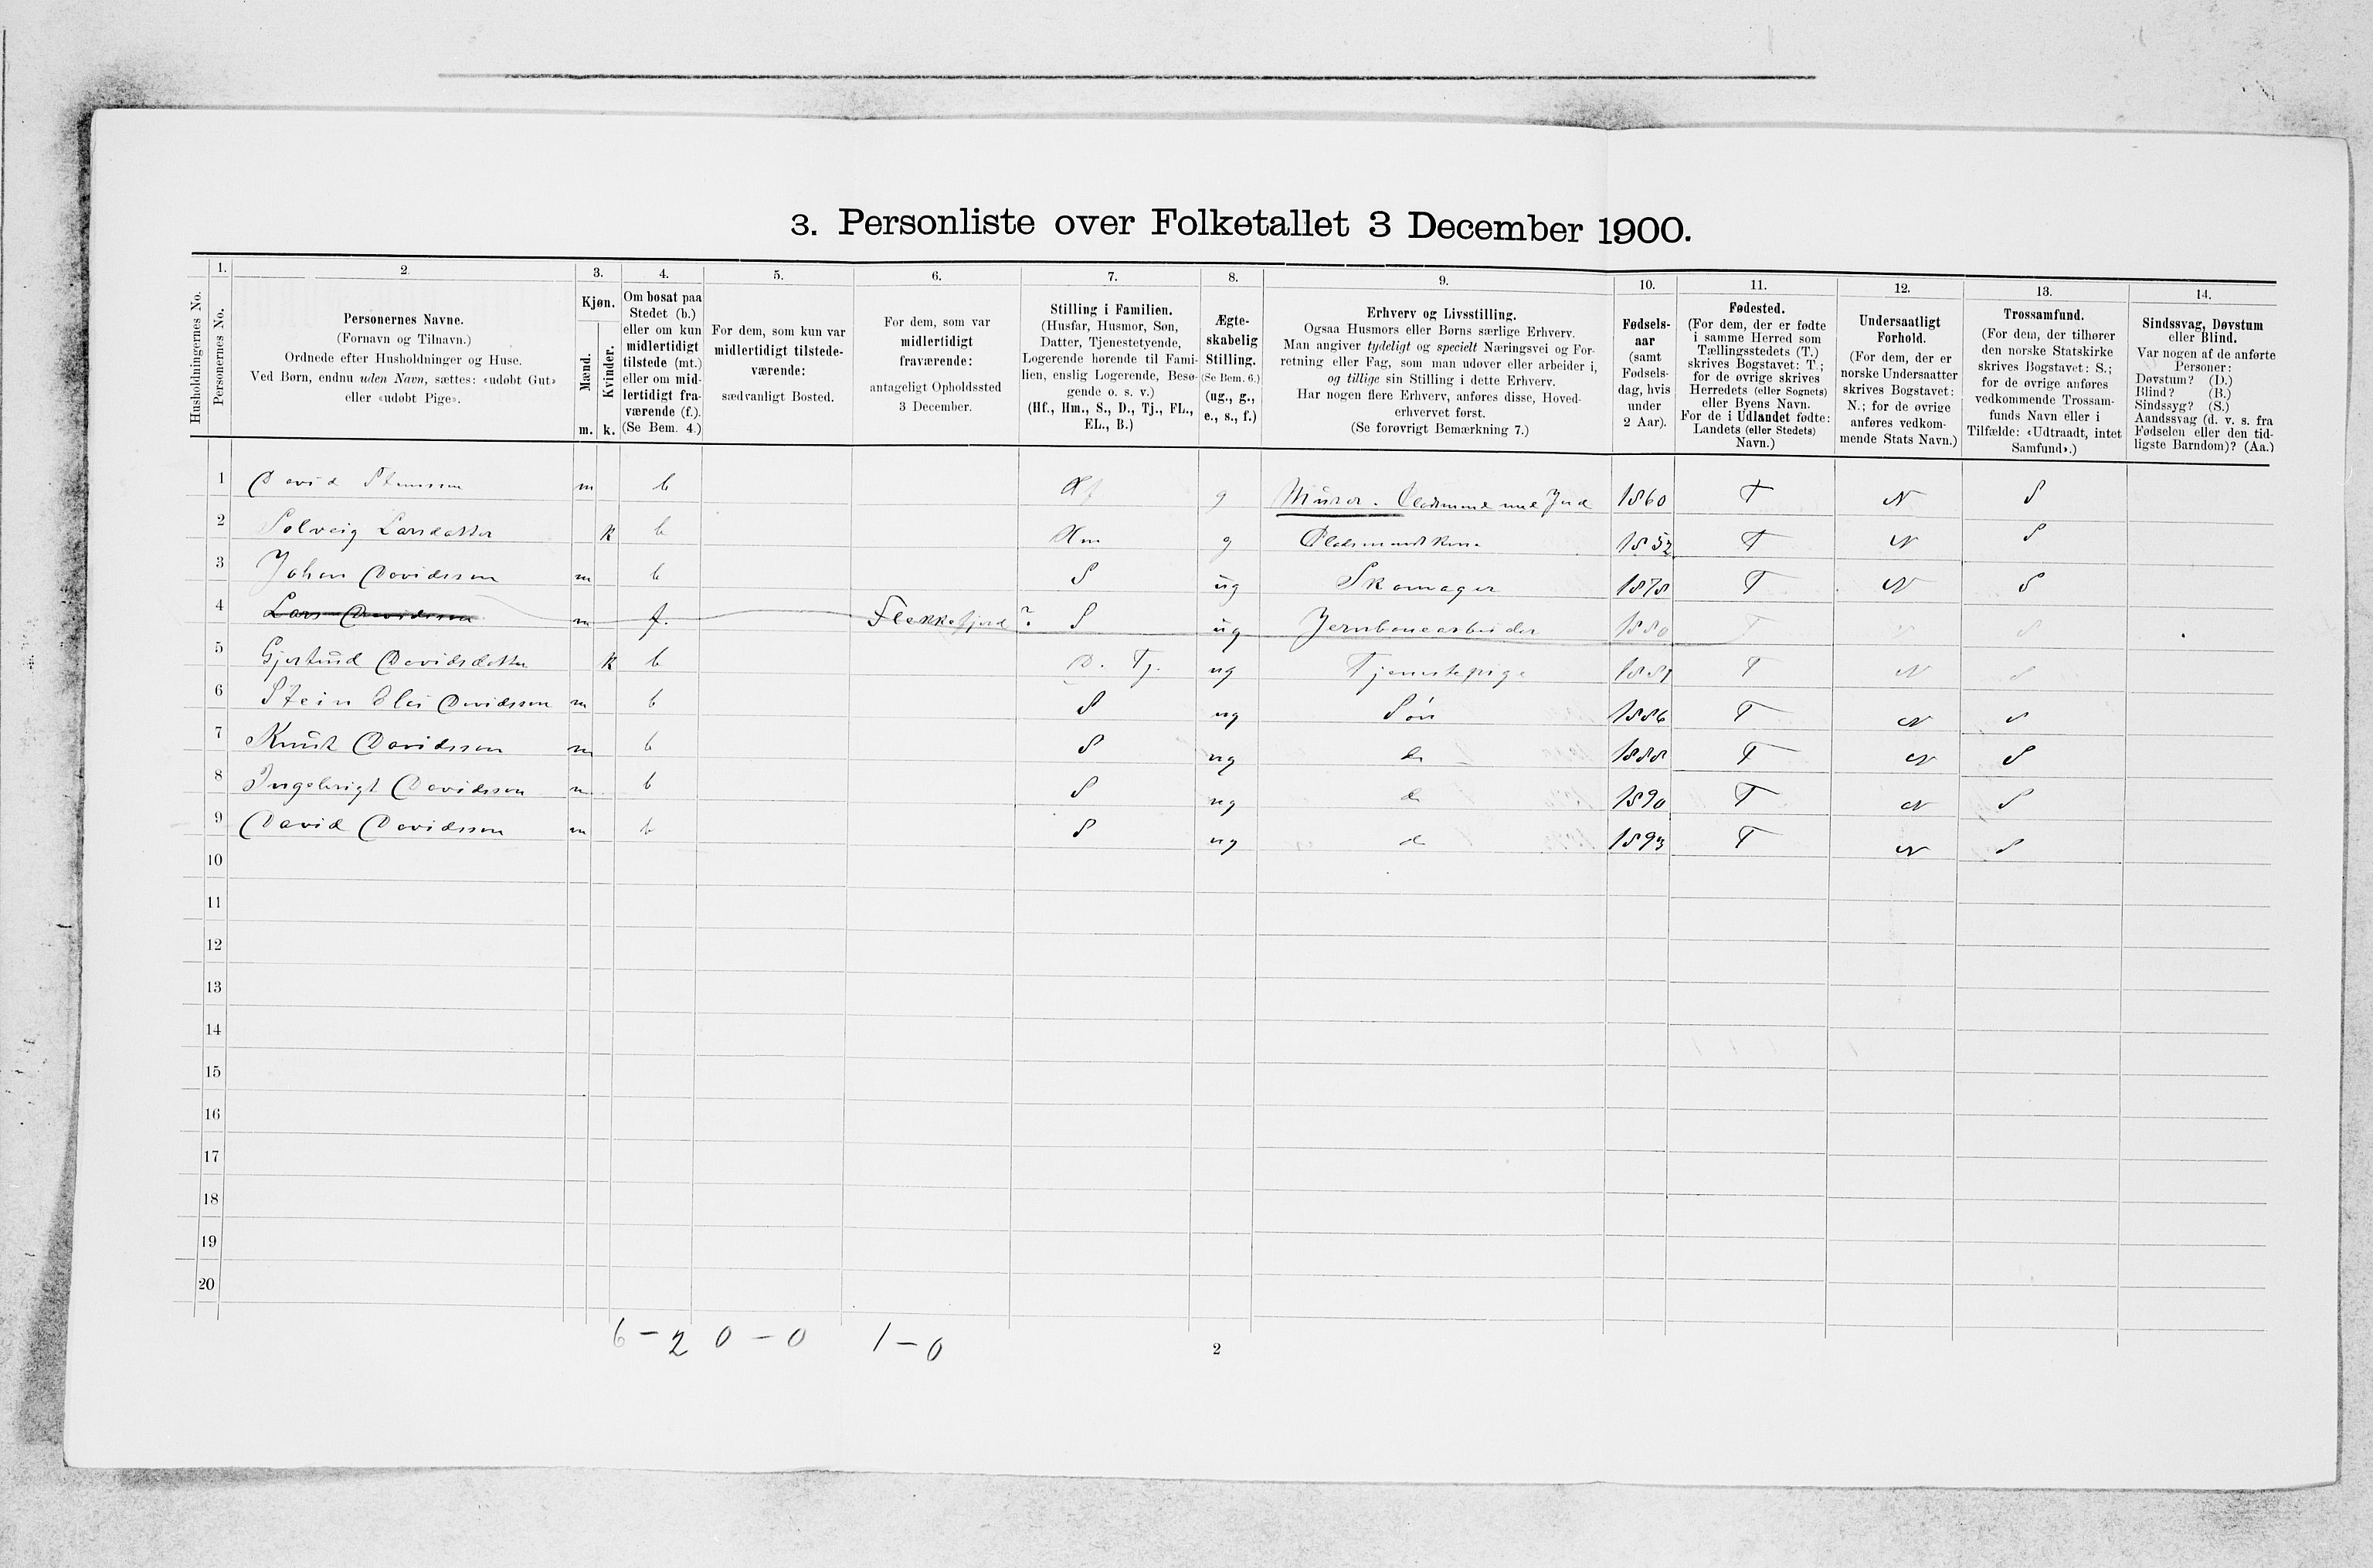 3. Personliste over Folketallet 3 December 1900.
Husholdningernes No.
1. Personernes No.
2. Personernes Navne.
(Fornavn og Tilnavn.)
Ordnede efter Husholdninger og Huse.
Ved Børn, endnu uden Navn, sættes: «udøbt Gut»
eller «udøbt Pige».
3. Kjøn.
Mænd. m.
Kvinder. k.
4. Om bosat paa
Stedet (b.)
eller om kun
midlertidigt
tilstede (mt.)
eller om mid-
lertidigt fra-
værende (f.).
(Se Bem. 4.)
5. For dem, som kun var
midlertidigt tilstede-
værende:
sædvanligt Bosted.
6. For dem, som var
midlertidigt
fraværende:
antageligt Opholdssted
3 December.
7. Stilling i Familien.
(Husfar, Husmor, Søn,
Datter, Tjenestetyende,
Logerende hørende til Fami-
lien, enslig Logerende, Besø-
gende o. s. v.)
(Hf., Hm., S., D., Tj., FL.,
EL., B.)
8. Ægte-
skabelig
Stilling.
(Se Bem. 6.)
(ug., g.,
e., s., f.)
9. Erhverv og Livsstilling.
Ogsaa Husmors eller Børns særlige Erhverv.
Man angiver tydeligt og specielt Næringsvei og For-
retning eller Fag, som man udøver eller arbeider i,
og tillige sin Stilling i dette Erhverv.
Har nogen flere Erhverv, anføres disse, Hoved-
erhvervet først.
(Se forøvrigt Bemærkning 7.)
10. Fødsels-
aar
(samt
Fødsels-
dag, hvis
under
2 Aar).
11. Fødested.
(For dem, der er fødte
i samme Herred som
Tællingsstedets (T.)
skrives Bogstavet: T.;
for de øvrige skrives
Herredets (eller Sognets)
eller Byens Navn.
For de i Udlandet fødte:
Landets (eller Stedets)
Navn.)
12. Undersaatligt
Forhold.
(For dem, der er
norske Undersaatter
skrives Bogstavet:
N.; for de øvrige
anføres vedkom-
mende Stats Navn.)
13. Trossamfund.
(For dem, der tilhører
den norske Statskirke
skrives Bogstavet: S.;
for de øvrige anføres
vedkommende Trossam-
funds Navn eller i
Tilfælde: «Udtraadt, intet
Samfund».)
14. Sindssvag, Døvstum
eller Blind.
Var nogen af de anførte
Personer:
Døvstum? (D.)
Blind? (B.)
Sindssyg? (S.)
Aandssvag (d. v. s. fra
Fødselen eller den tid-
ligste Barndom)? (Aa.)
1 David m b Hf g Murer. Pladsmand med Jord 1860 T N S
2 Solveig Larsdatter k b Hm g 1852 T N S
3 Johan Davidsson m b S ug Skomager 1878 T N S
4 Lars Davidsson m f. Flekkefjord ? S ug Jernbanearbeider 1880 T N S
5 Gjertrud Davidsdatter k b D. Tj. ug Tjenestepige T N S
6 Stein Davidsson m b S ug Søn 1886 T N S
7 Knut Davidsson m b S ug do 1888 T N S
8 Ingebrigt Davidsson m b S ug do 1890 T N S
9 David Davidsson m b S ug do 1893 T N S
10
11
12
13
14
15
16
17
18
19
20
6 – 2 0 – 0 1 – 0
2